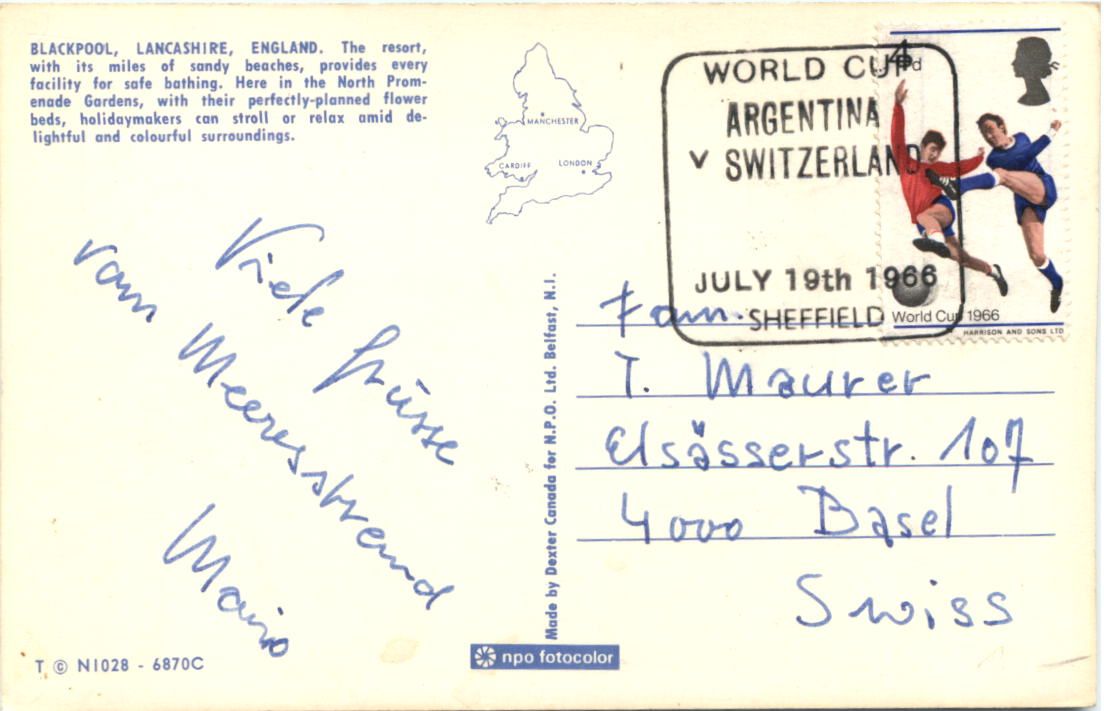 BLACKPOOL, LANCASHIRE, ENGLAND. The resort,
with its miles of sandy beaches, provides every
facility for safe bathing. Here in the North Prom-
enade Gardens, with their perfectly-planned flower
beds, holidaymakers can stroll or relax amid de-
lightful and colourful surroundings.
MANCHESTER
CARDIFF
LONDON
WORLD CUP
ARGENTINA
V SWITZERLAND
JULY 19th 1966
SHEFFIELD
4d
World Cup 1966
HARRISON AND SONS LTD
Viele Grüsse
vom Meeresstrand
Mario
Made by Dexter Canada for N.P.O. Ltd. Belfast, N.I.
Fam.
T. Maurer
Elsässerstr. 107
4000 Basel
Swiss
T © N1028 - 6870C
npo fotocolor